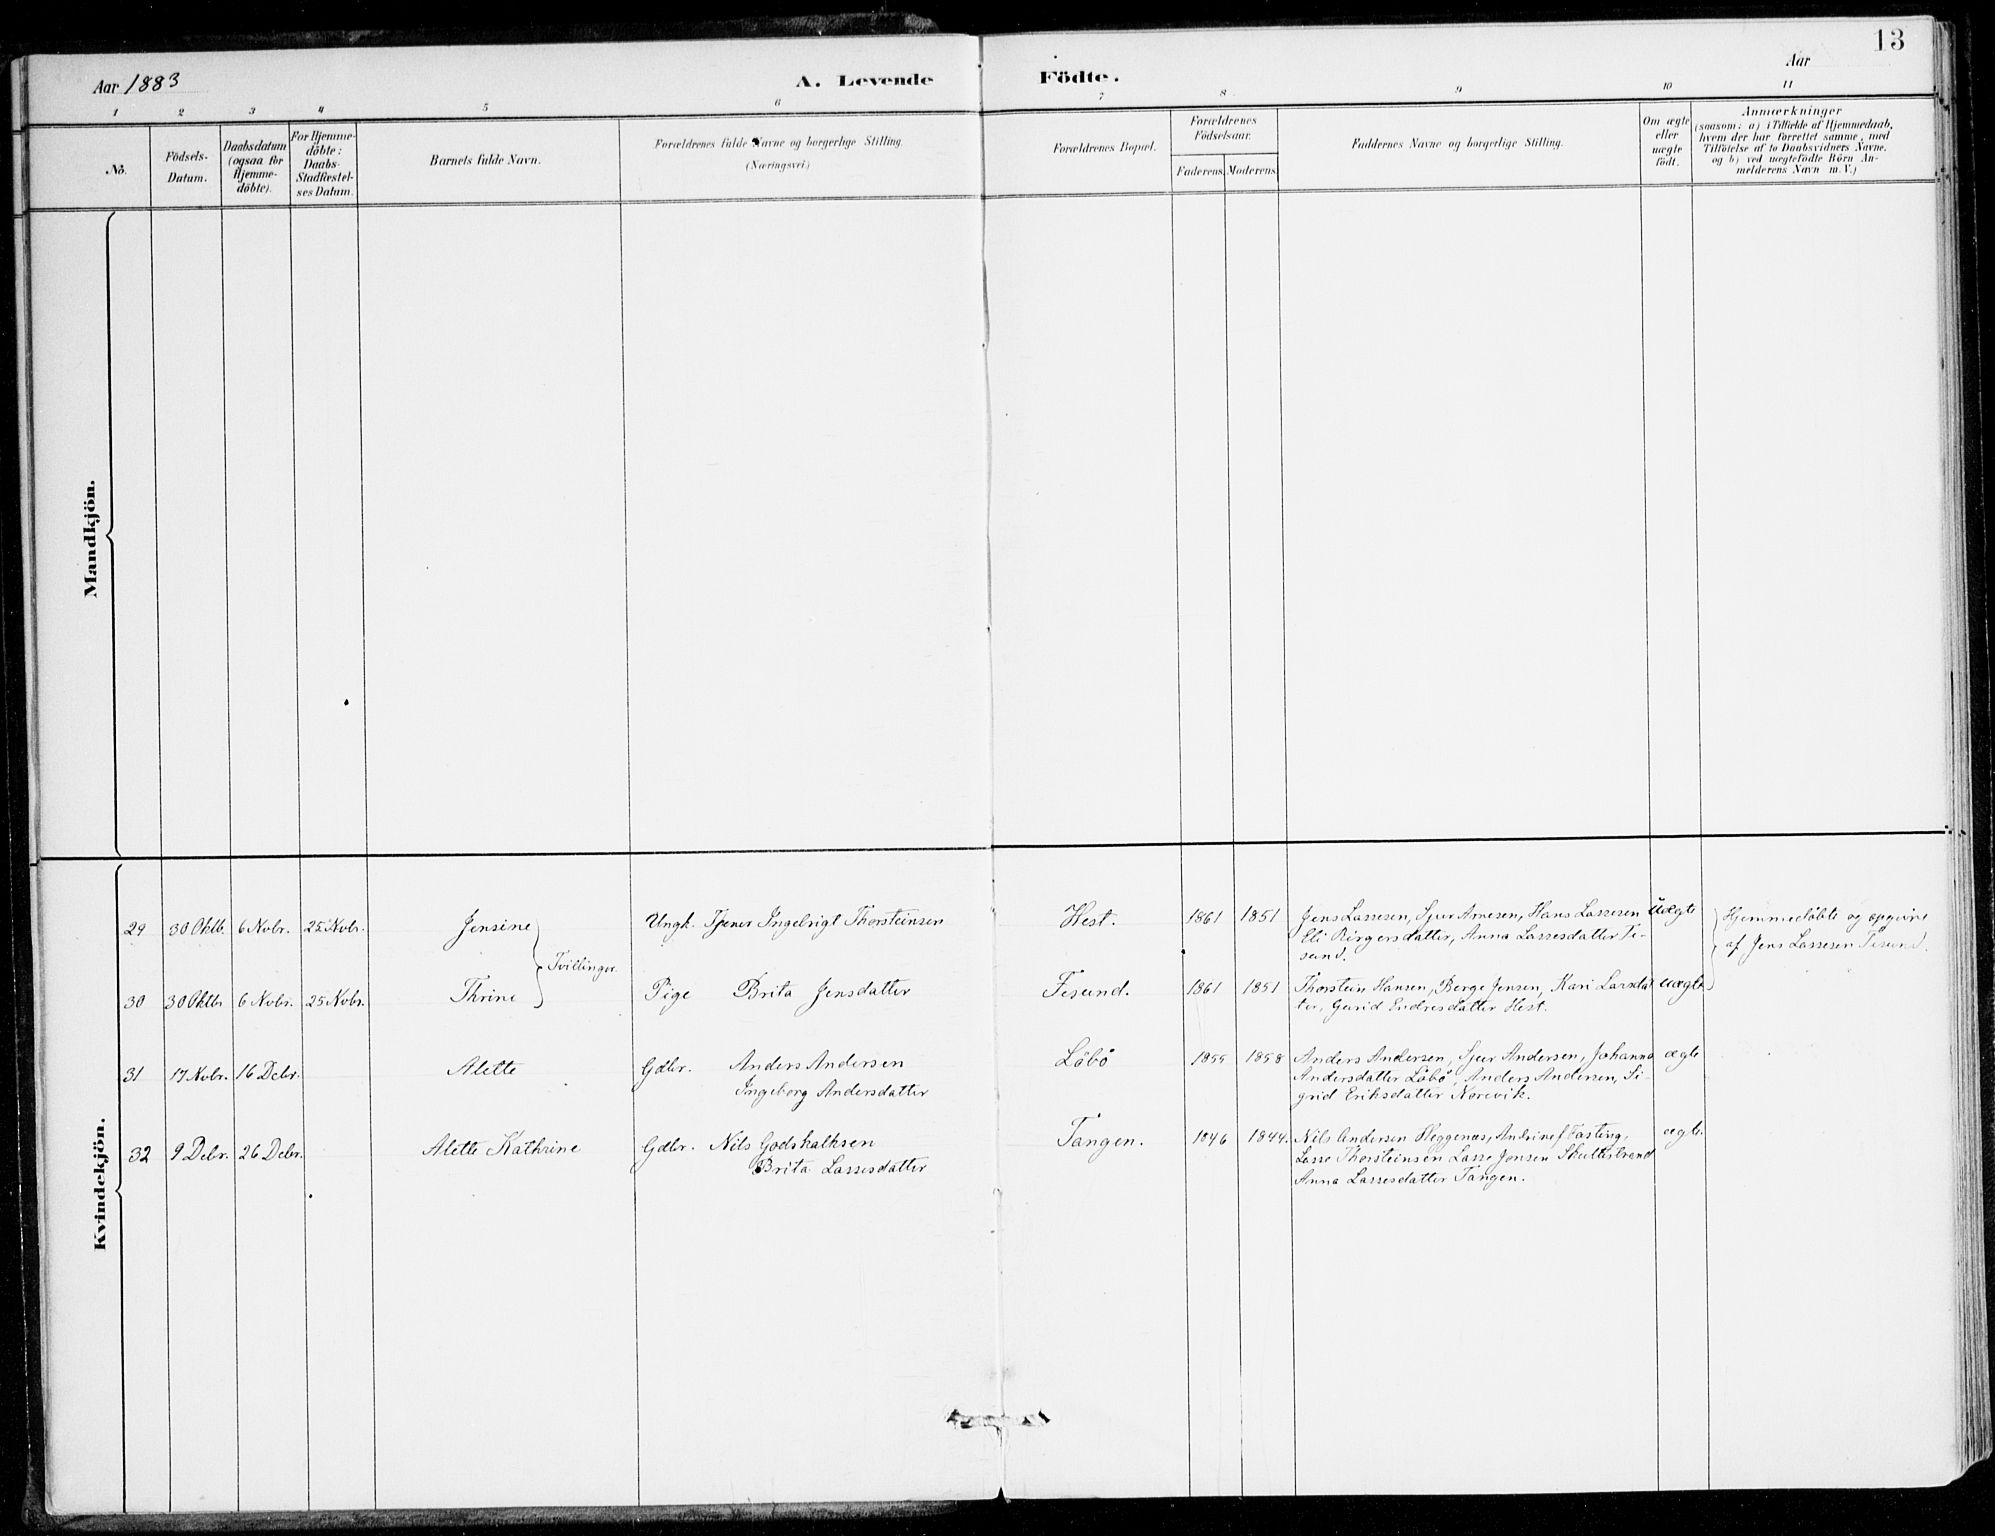 13
Aar 1883
A. Levende Födte.
Aar
1 2 3 4 5 6 7 8 9 10 11
No.
Födsels-
Datum.
Daabsdatum
(ogsaa for
Hjemme-
döbte).
For Hjemme-
döbte:
Daabs-
Stadfæstel-
ses Datum.
Barnets fulde Navn.
Forældrenes fulde Navne og borgerlige Stilling.
(Næringsvei)
Forældrenes Bopæl.
Forældrenes
Födselsaar.
Faderens. Moderens.
Faddernes Navne og borgerlige Stilling.
Om ægte
eller
uægte
födt.
Anmærkninger
(saasom: a) i Tilfælde af Hjemmedaab,
hvem der har forrettet samme, med
Tilföielse af to Daabsvidners Navne,
og b) ved uægtefödte Börn An-
melderens Navn m.V.)
Mandkjön.
Kvindekjön.
29 30 Oktb. 6 Novbr. 25 Novbr. Jensine Ungk. Tjener Ingebrigt Thorsteinsen Hest. 1861 1851 Jens Lassesen, Sjur Arnesen, Hans Lassesen Uægte
Eli Börgersdatter, Anna Lassesdatter Ti-
sund.
Tvillinger
Hjemmedöbte og opgivne
af Jens Lassesen Tisund.
30 30 Oktbr 6 Novbr. 25 Novbr. Thrine Pige Brita Jensdatter Tisund. 1861 1851 Thorstein Hansen, Berge Jensen, Kari Larsdat uægte
ter, Gurid Endresdatter Hest.
31 17 Novbr. 16 Debr. Alette Gdbr. Anders Andersen Löbö 1855 1858 Anders Andersen, Sjur Andersen, Johanna ægte
Ingeborg Andersdatter
Andersdatter Löbö, Anders Andersen, Si-
grid Eriksdatter Norevik.
32 9 Debr. 26 Debr. Alette Kathrine Gdbr. Nils Godskalksen Tangen. 1846 1844. Nils Andersen Heggenæs, Andrine J Fasting, ægte.
Brita Lassesdatter
Lasse Thorsteinsen Lasse Jonsen Skuttestrand
Anna Lassesdatter Tangen.